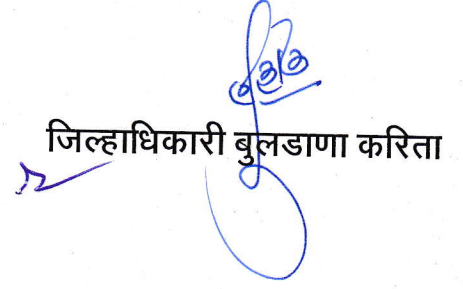 जिल्हाधिकारी बुलडाणा करिता